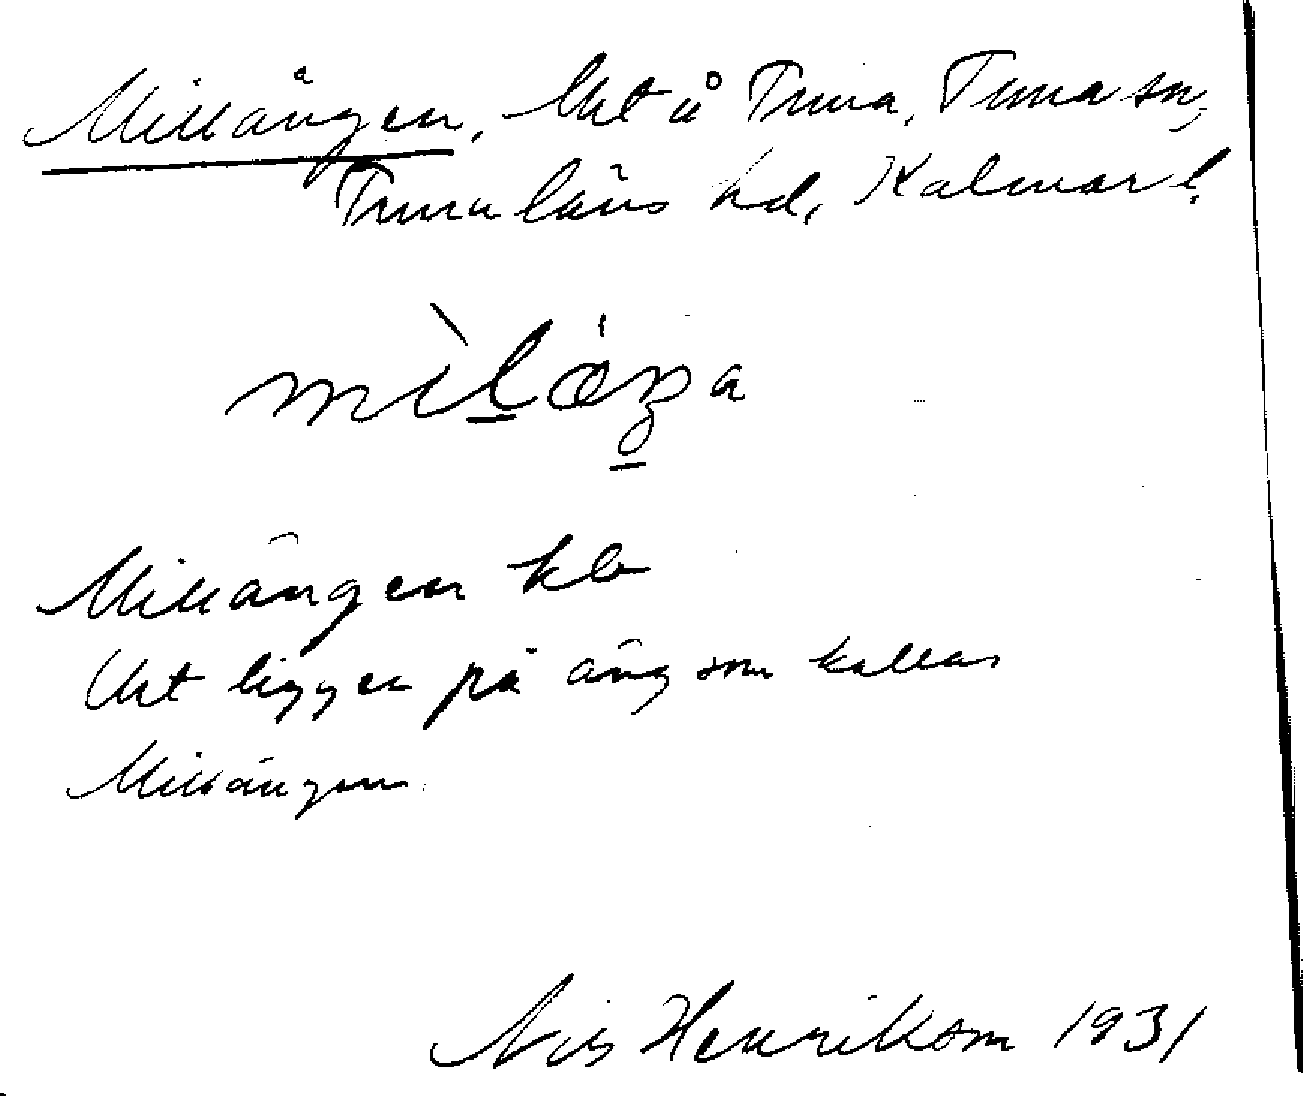 Millängen, Utt å Tuna, Tuna sn,
Tunaläns hd, Kalmar l.
Millängen kb
Utt ligger på äng som kallas
Millängen
Nils Henrikson 1931